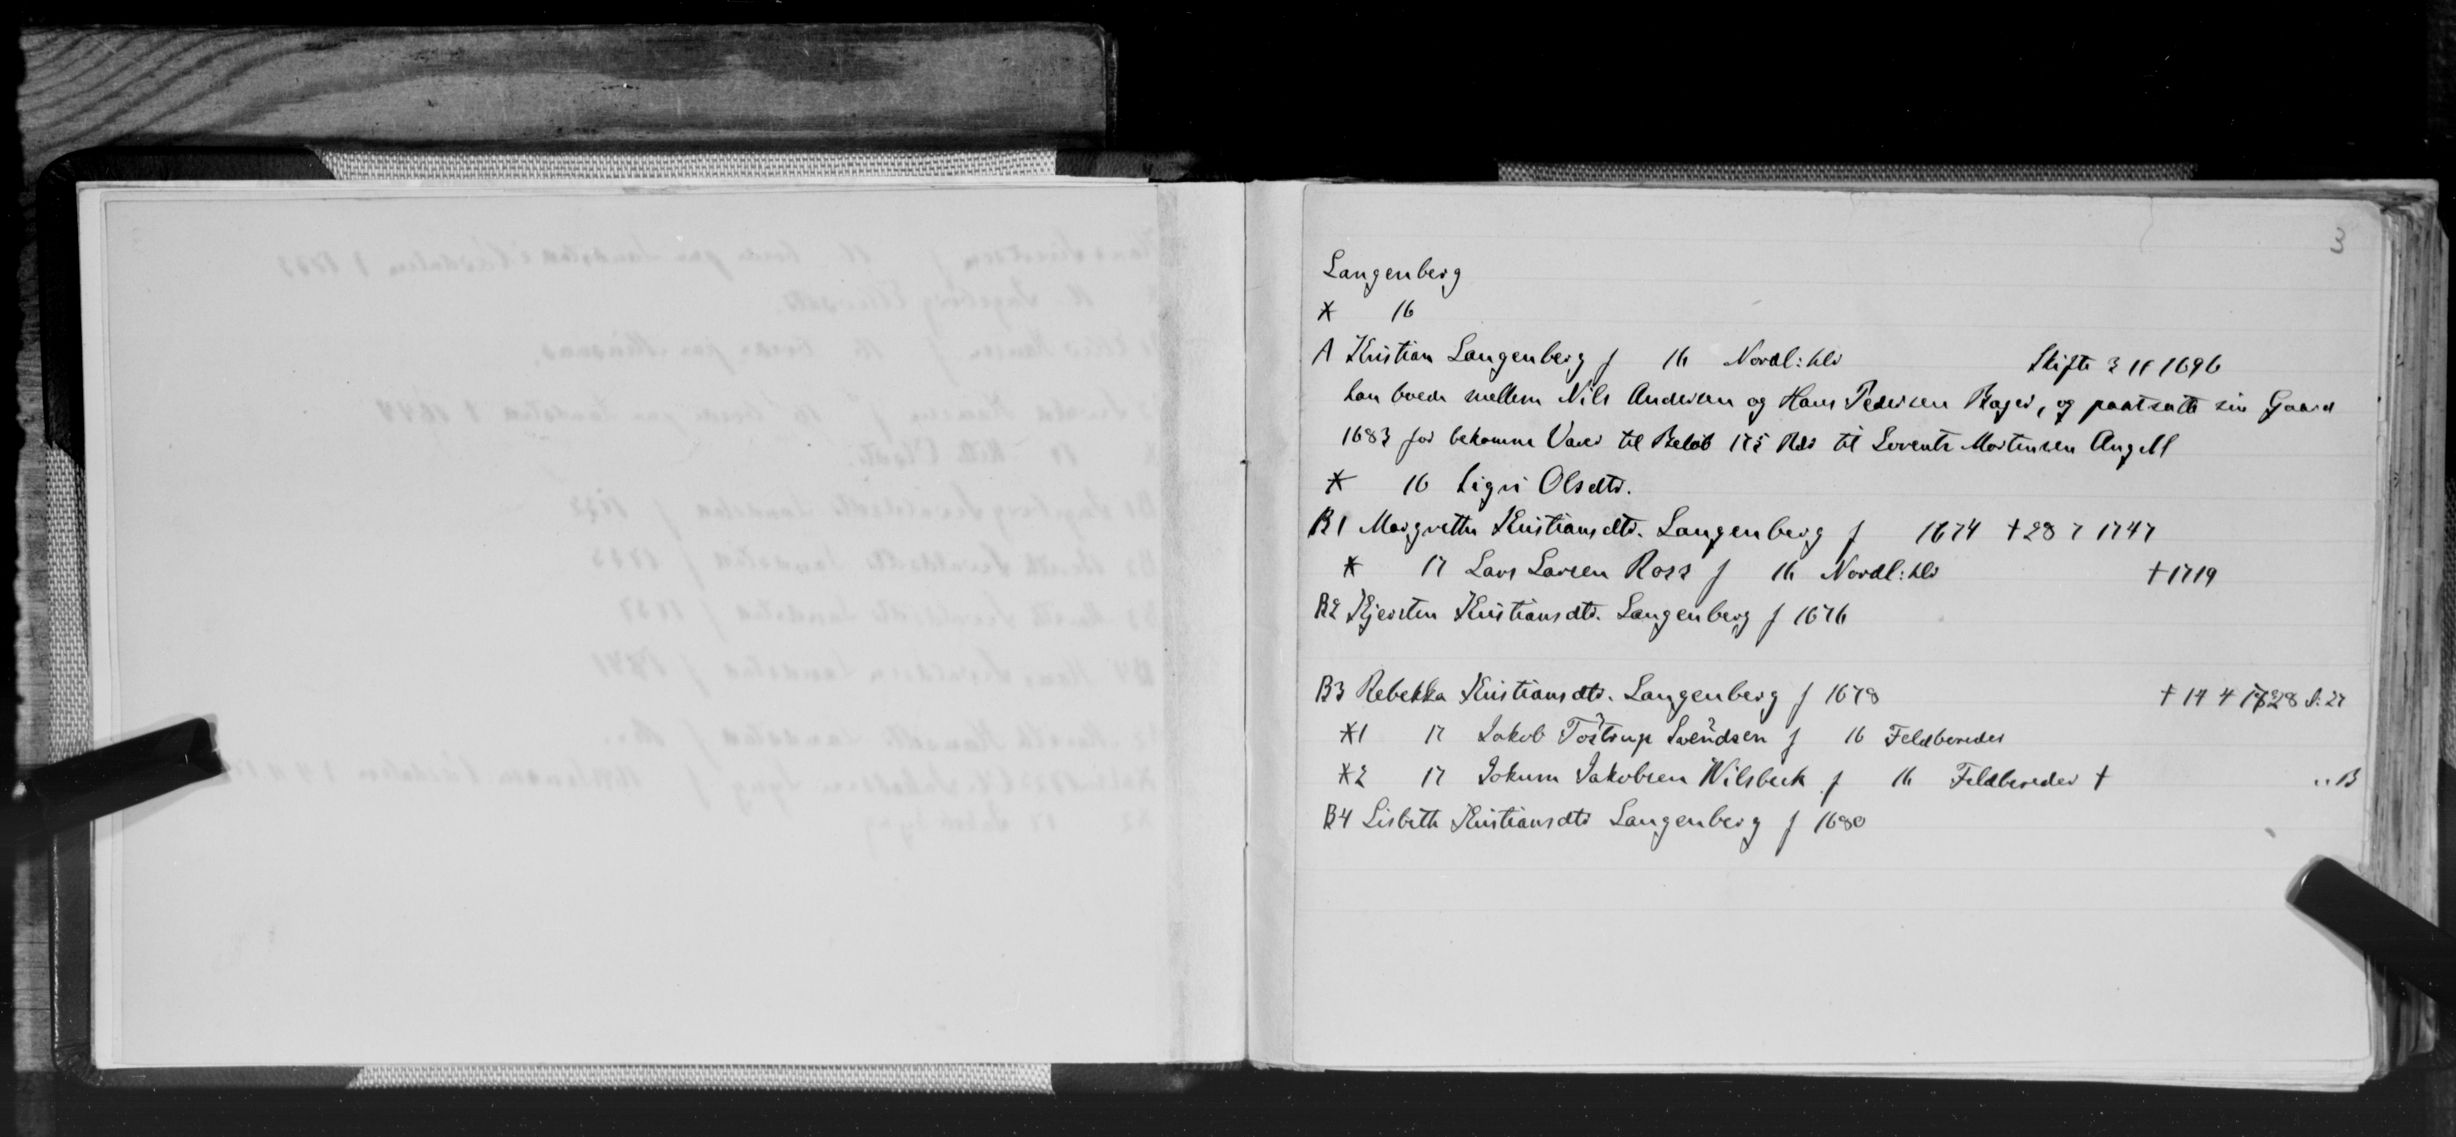 3
Langenberg
* 16
A Kristian Langenberg f 16 Nordl:hdr Skifte 3 11 1696
han boede mellem Nils Andersen og Hans Pedersen Bager, og pantsatte sin Gaard
1683 for bekomne Varer til Beløb 175 Rdr til Lorents Mortensen Angell
* 16 Sigri Olsdtr.
B1 Margrethe Kristiansdtr. Langenberg f 1674 † 28 7 1747
* 17 Lars Larsen Ross f 16 Nordl:hdr † 1719
B2 Kjersten Kristiansdtr. Langenberg f 1676
B3 Rebekka Kristiansdtr. Langenberg f 1678 † 14 4 1728 S:27
*1 17 Jakob Tostrup Svendsen f 16 Feldbereder
*2 17 Jokum Jakobsen Wilsbeck f 16 Feldbereder † ..B
B4 Lisbeth Kristiansdtr Langenberg f 1680